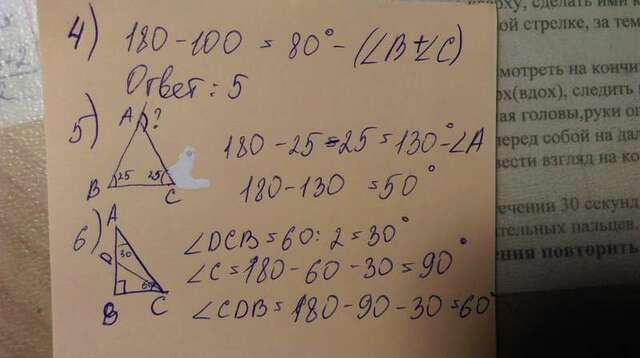 4) 180-100=80°-(∠B+∠C)
Ответ: 5
5) A ?
B 25 25 C
180-25-25=130°-∠A
180-130=50°
6) A
30
D
60
B C
∠DCB=60:2=30°
∠C=180-60-30=90°
∠CDB=180-90-30=60°
рху, сделать ими к
ой стрелке, за тем
мотреть на кончи
рх(вдох), следить
ая головы,руки оп
перед собой на дал
вести взгляд на ко
течении 30 секунд
тельных пальцев.
ния повторить